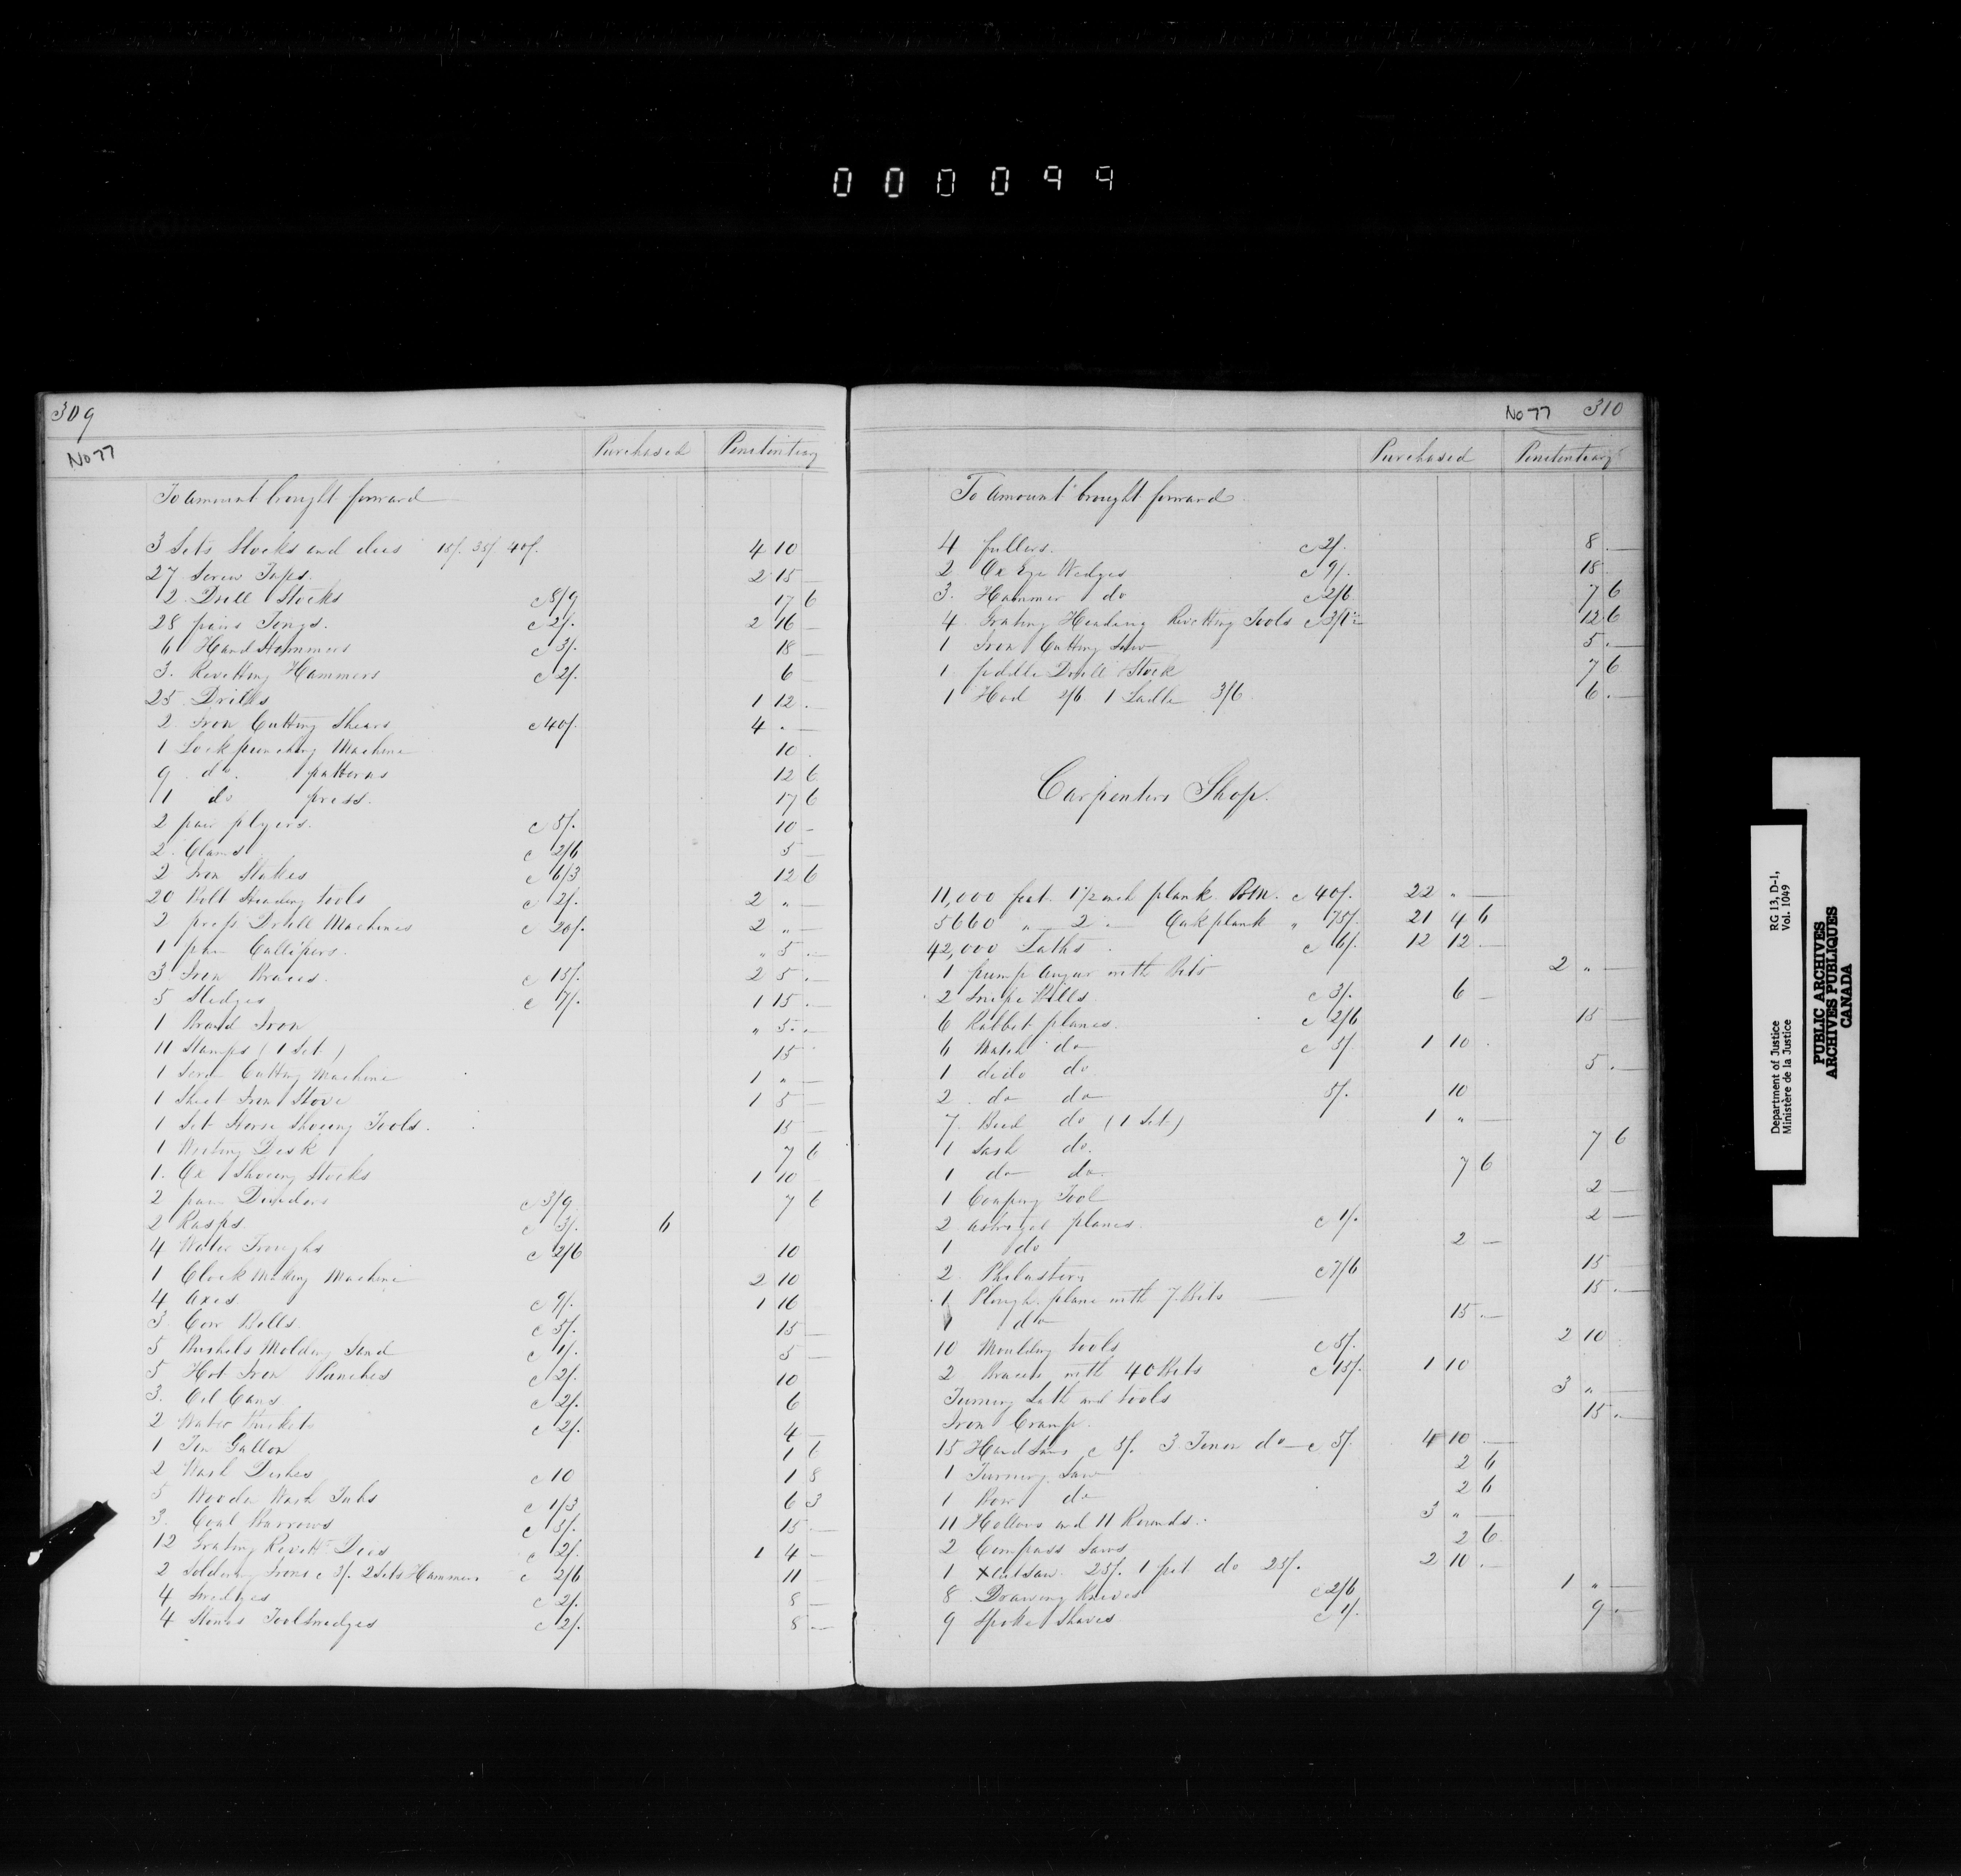 000099
309
No 77
Purchased Penitentiary
To amount brought forward
3 Sets Stocks and dies 15/. 35/. 40/. 4 10
27 Screw Taps. 2 15 —
2 Drill Stocks c 8/9 17 6
28 pairs Tongs. c 2/. 2 16 —
6 Hand Hammers c 3/. 18 —
3. Rivetting Hammers c 2/. 6 —
25 Drills 1 12 . —
2 Iron Cutting Shears c 40/. 4 . —
1 Lock punching Machine 10 .
9 do. patterns 12 6
1 do press. 17 6
2 pair plyers. c 5/. 10 —
2. Clams c 2/6 5 —
2 Iron Stakes c 6/3 12 6
20 Bolt Heading tools c 2/. 2 „ —
2 press Drill Machines c 20/. 2 „ —
1 pair Callipers. „ 5 . —
3. Iron Braces. c 15/. 2 5 . —
5 Sledges c 7/. 1 15 . —
1 Brand Iron „ 5 . —
11 Stamps (1 Set) 15
1 Screw Cutting Machine 1 „ —
1 Sheet Iron Stove 1 5 —
1 Set Horse Shoeing Tools. 15 —
1 Writing Desk 7 6
1. Ox Shoeing Stocks 1 10 —
2 pair Dividers c 3/9 7 6
2 Rasps. c 3/. 6
4 Water Troughs c 2/6 10
1 Clock Making Machine 2 10
4 Axes. c 9/. 1 16
3. Cow Bells. c 5/. 15 —
5 Bushels Molding Sand c 1/. 5 —
5 Hot Iron Punches c 2/. 10
3. Oil Cans. c 2/. 6
2 Water Buckets c 2/. 4 —
1 Tin Gallon 1 6
2 Wash Dishes c 10 1 8
5 Wooden Wash Tubs c 1/3 6 3
3. Coal Barrows c 5/. 15 . —
12 Grating Revett Dies c 2/. 1 4 —
2 Soldering Irons c 3/. 2 Sets Hammers c 2/6 11 —
4 Swedges c 2/. 8 —
4 Stones Tool Swedges c 2/. 8 . —
No 77 310
Purchased Penitentiary
To amount brought forward
4 fullers. c 2/. 8 . —
2 Ox Eye Wedges c 9/. 18 .
3. Hammer do c 2/6 7 6
4 Grating Heading Rivetting Tools c 3/1½ 12 6
1 Iron Cutting Saw 5 . —
1 fiddle Drill Stock 7 6
1 Hod 2/6 1 Ladle 3/6 6 . —
Carpenters Shop.
11,000 feet 1½ inch plank B.M. c 40/. 22 „ —
5660 „ 2 „ Oak plank „ 75/. 21 4 6
42,000 Laths c 6/. 12 12 . —
1 pump Augur with Bits 2 „ —
2 Snipe Bills c 3/. 6 —
6 Rabbet planes. c 2/6 15 —
6 Match do c 5/. 1 10 .
1 dido do 5 . —
2. do do 5/. 10
7. Bead do (1 Set) 1 „ —
1 Sash do. 7 6
1 do do. 7 6
1 Cooping Tool 2 —
2 astragal planes. c 1/. 2 —
1 do 2 —
2 Philasters c 7/6 15 —
1 Plough plane with 7. Bits 15 . —
1 do 15 . —
10 Moulding tools c 5/. 2 10
2 Braces with 40 Bits c 15/. 1 10
Turning Lath and tools 3 „ —
Iron Cramp. 15 . —
15 Hand Saws c 5/. 3 Tenon do c 5/. 4 10 . —
1 Turning Saw 2 6
1 Bow do 2 6
11 Hollows and 11 Rounds. 3 „ —
2 Compass Saws 2 6
1 Xcut Saw 25/. 1 pit do 25/. 2 10 . —
8 Drawing Knives c 2/6 1 „ —
9 Spoke Shaves c 1/. 9 . —
Department of Justice RG 13, D-1,
Ministère de la Justice Vol. 1049
PUBLIC ARCHIVES
ARCHIVES PUBLIQUES
CANADA